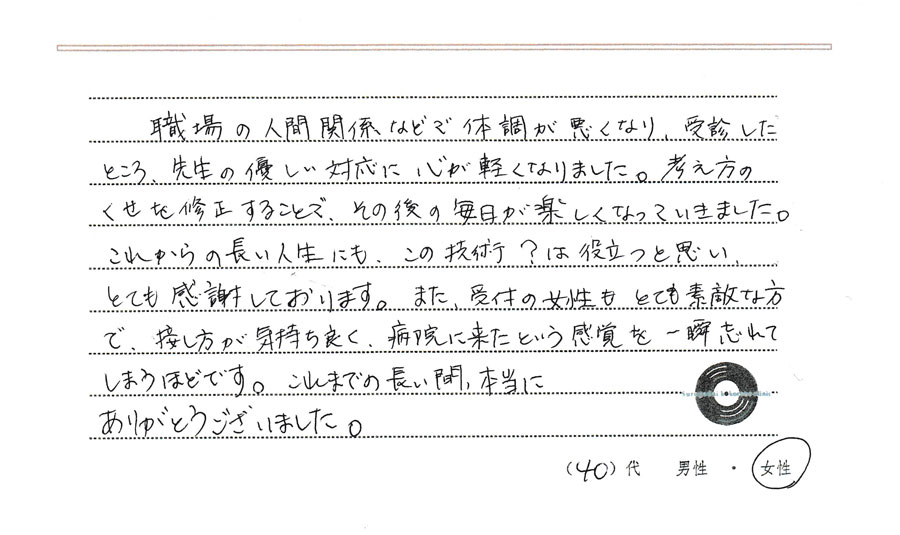 職場の人間関係などで体調が悪くなり、受診した
ところ、先生の優しい対応に心が軽くなりました。考え方の
くせを修正することで、その後の毎日が楽しくなっていきました。
これからの長い人生にも、この技術？は役立つと思い、
とても感謝しております。また、受付の女性もとても素敵な方
で、接し方が気持ち良く、病院に来たという感覚を一瞬忘れて
しまうほどです。これまでの長い間、本当に
ありがとうございました。
(40)代 男性 ・ 女性